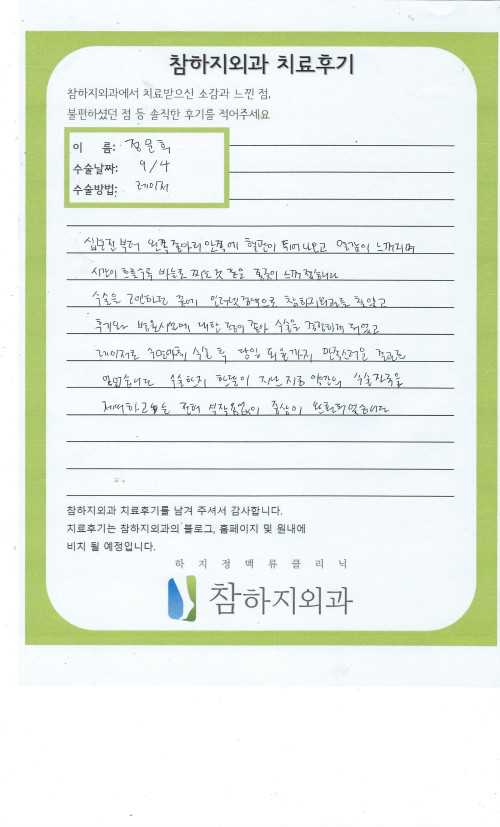 참하지외과 치료후기
참하지외과에서 치료받으신 소감과 느낀 점,
불편하셨던 점 등 솔직한 후기를 적어주세요
이 름: 정윤희
수술날짜: 9/4
수술방법: 레이저
십년전부터 왼쪽 종아리 안쪽에 혈관이 튀어나오고 열감이 느껴지며
시간이 흐를수록 바늘로 찌르는것 같은 통증이 느껴졌습니다
수술을 고민하던 끝에 인터넷 검색으로 참하지외과를 찾았고
후기와 병원시설에 대한 평이 좋아 수술을 결정하게 되었고
레이저로 수면마취 수술 후 당일 퇴원까지 만족스러운 결과를
얻었습니다 수술한지 한달이 지난 지금 약간의 수술자국을
제외하고는 전혀 부작용없이 증상이 완화되었습니다
참하지외과 치료후기를 남겨 주셔서 감사합니다.
치료후기는 참하지외과의 블로그, 홈페이지 및 원내에
비치 될 예정입니다.
하지정맥류클리닉
참하지외과